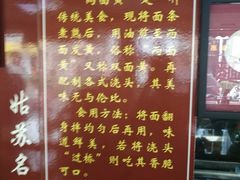 传统美食，现将面条
煮熟后，用油煎至两
面发黄，俗称“两面
黄”，又称双面黄。再
配制各式浇头，其美
味无与伦比。
食用方法：将面翻
身拌均匀后再用，味
道鲜美，若将浇头
“过桥”则吃其香脆
可口。
姑苏名